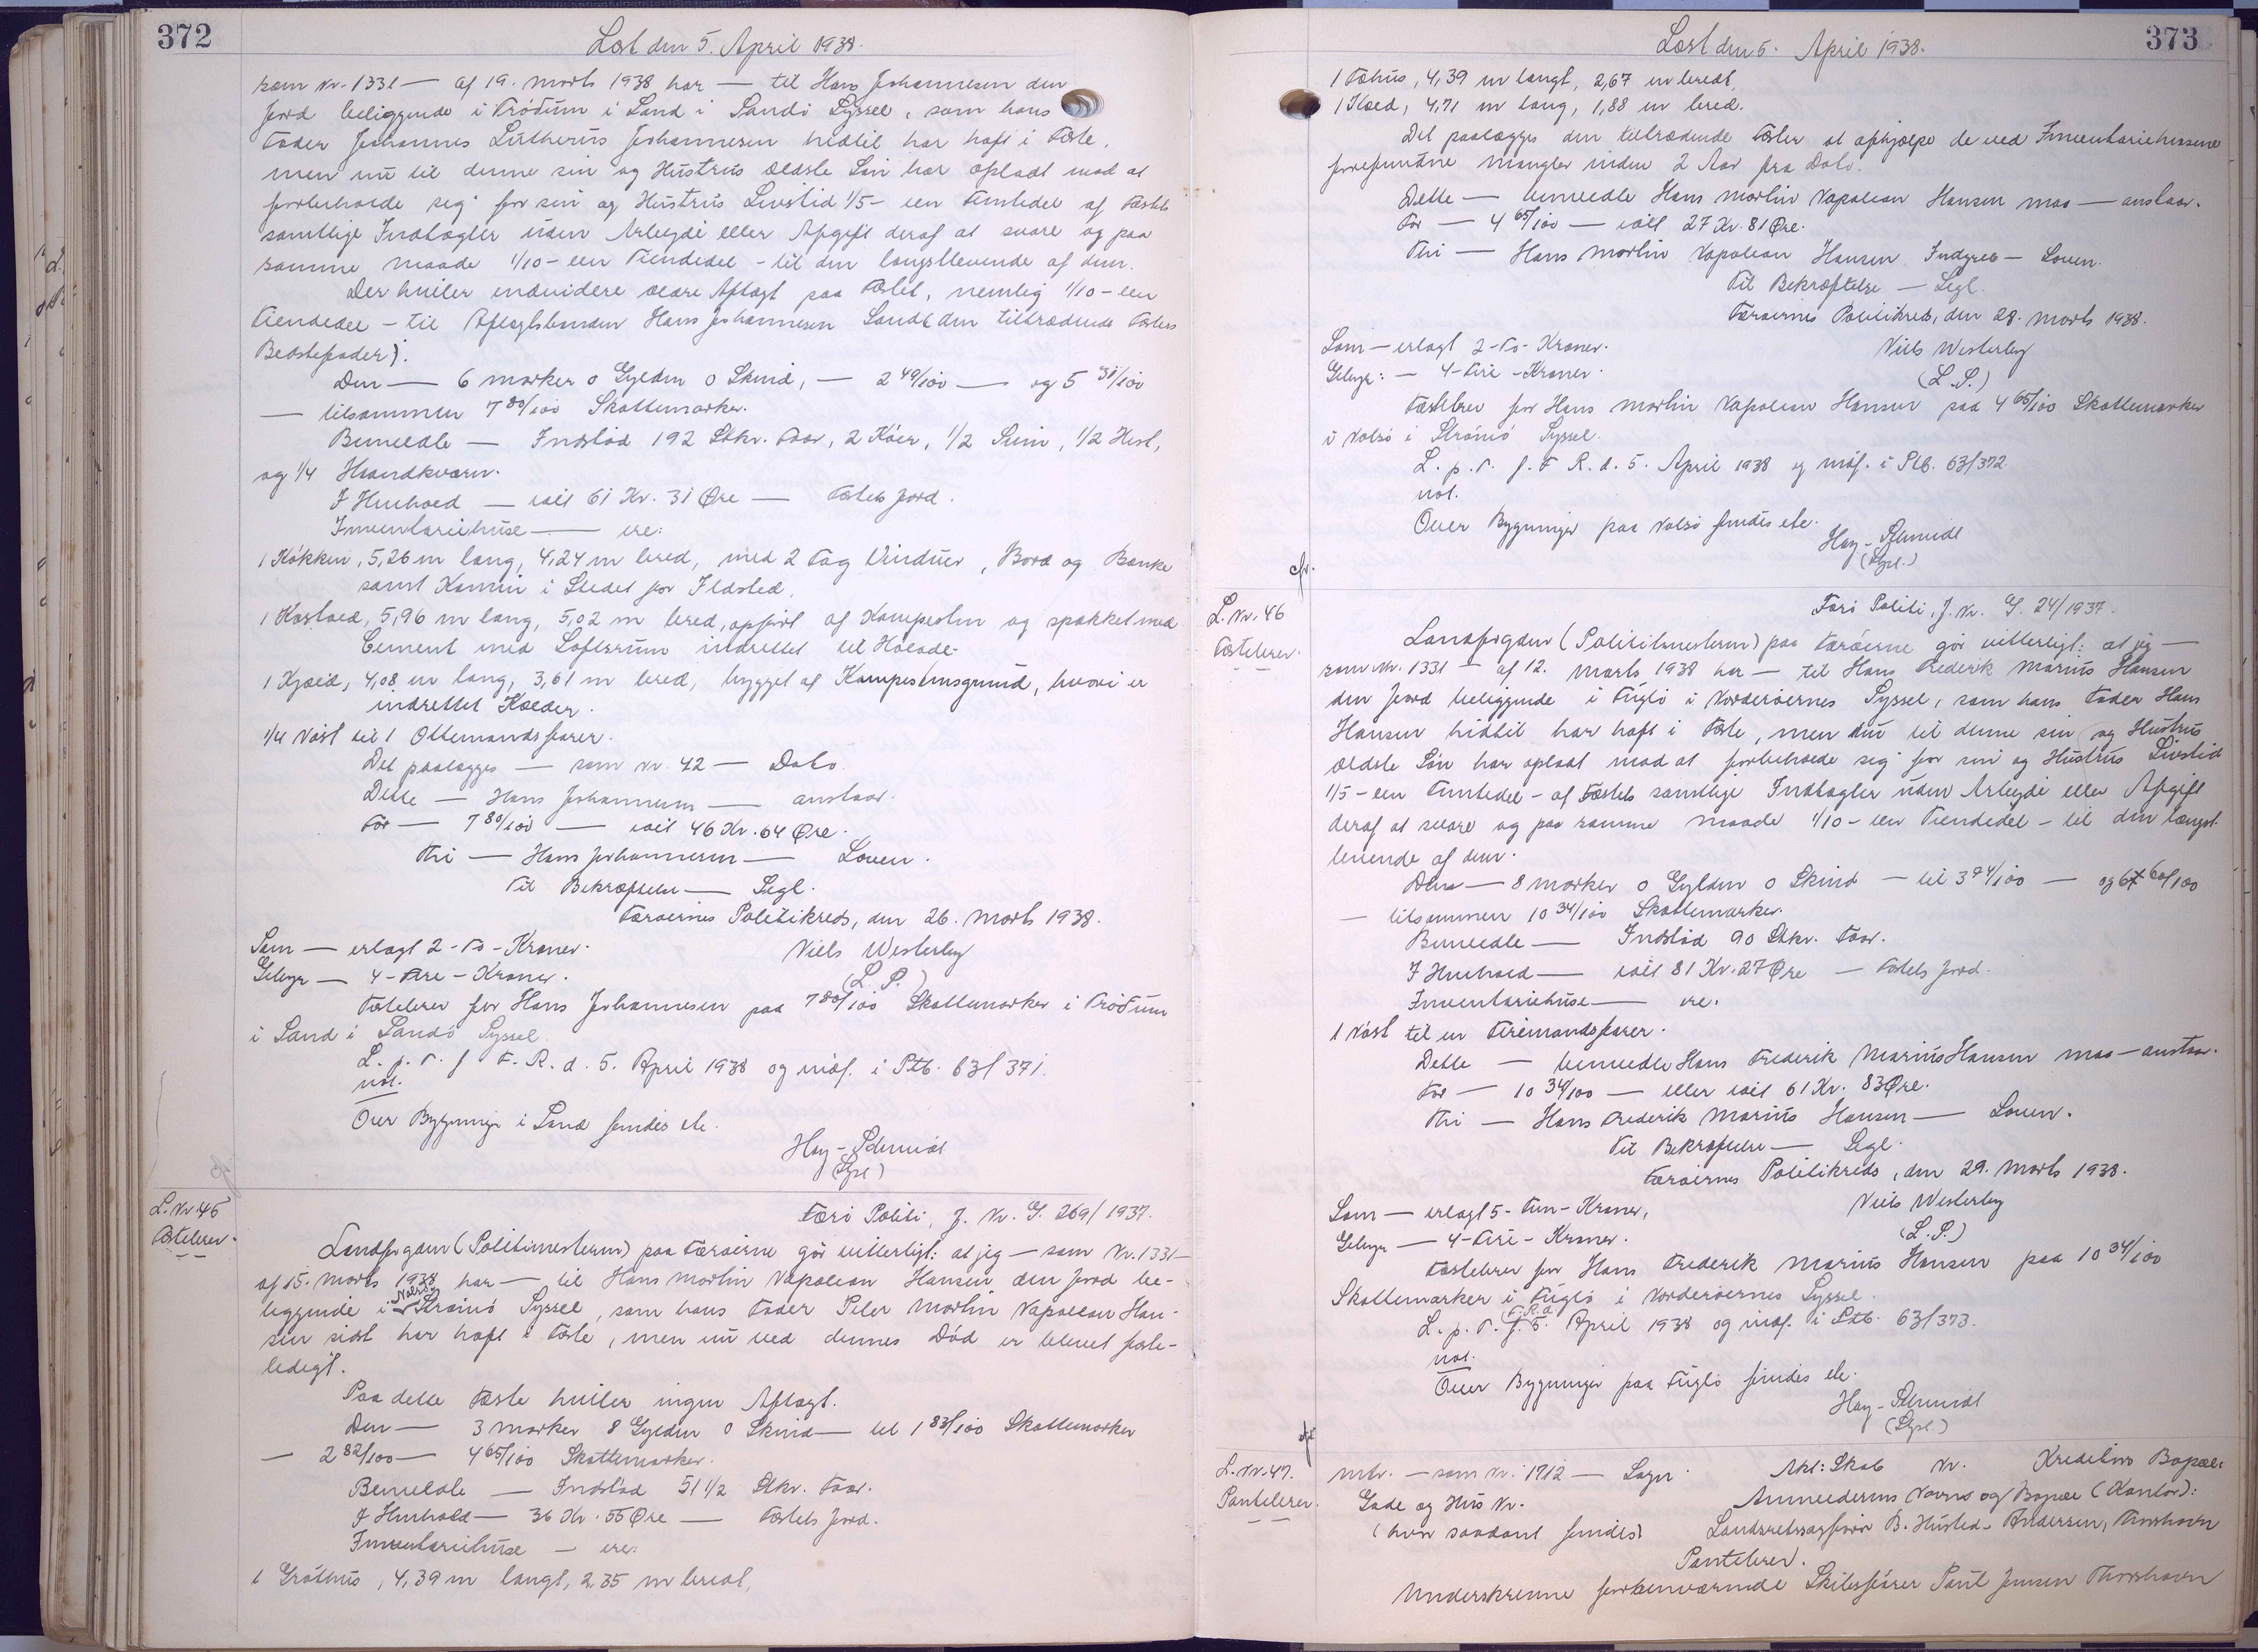 372
Læst den 5. April 1938.
som Nr. 1331 — af 19. Marts 1938 har — til Hans Johannesen den
Jord beliggende i Tródum i Sand i Sandö Syssel, som hans
Fader Johannes Lutherus Johannesen hidtil har haft i Fæste,
men nu til denne sin og Hustrus ældste Søn har opladt mod at
forbeholde sig for sin og Hustrus Livstid 1/5 - een Femtedel af Fæstets
samtlige Indtægter uden Arbejde eller Afgift deraf at svare og paa
samme Maade 1/10 - een Tiendedel - til den længstlevende af dem.
Der hviler endvidere ældre Aftægt paa Fæstet, nemlig 1/10 - een
Tiendedel - til Aftægtsbonden Hans Johannesen Sand (den tiltrædende Fæsters
Bedstefader).
Den — 6 Marker 0 Gylden 0 Skind, — 2 49/100 — og 5 31/100
— tilsammen 7 80/100 Skattemarker.
Bemeldte — Indstød 192 Stkr. Faar, 2 Køer, 1/2 Svin, 1/2 Hest,
og 1/4 Haandkværn.
I Henhold — ialt 61 Kr. 31 Øre — Fæstets Jord.
Inventariehuse — ere:
1 Køkken, 5,26 m lang, 4,24 m bred, med 2 Fag Vinduer, Bord og Bænke
samt Kamin i Stedet for Ildsted.
1 Kostald, 5,96 m lang, 5,02 m bred, opført af Kampesten og spækket med
Cement med Loftsrum indrettet til Hølade.
1 Hjald, 4,08 m lang, 3,61 m bred, bygget af Kampestensgrund, hvori er
indrettet Kælder.
1/4 Nøst til 1 Ottemandsfarer.
Det paalægges — som Nr. 42 — Dato.
Dette — Hans Johannesen — anstaar.
For — 7 80/100 — ialt 46 Kr. 64 Øre.
Thi — Hans Johannesen — Loven.
Til Bekræftelse — Segl.
Færøernes Politikreds, den 26. Marts 1938.
Som — erlagt 2 - To - Kroner.
Niels Westerby
Gebyr — 4 - Fire - Kroner.
(L. S.)
Fæstebrev for Hans Johannesen paa 7 80/100 Skattemarker i Tródum
i Sand i Sandö Syssel.
L. p. T. f. F. R. d. 5. April 1938 og indf. i Ptb. 63/371.
not.
Over Bygninger i Sand findes ete.
Hay-Schmidt
L. Nr. 45
Fæstebrev.
Færø Politi, J. Nr. G. 269/1937.
Landfogden (Politimesteren) paa Færøerne gör vitterligt: at jeg — som Nr. 1331 —
af 15. Marts 1938 har — til Hans Martin Napoleon Hansen den Jord be-
Nolsø i
liggende i Strömö Syssel, som hans Fader Peter Martin Napoleon Han-
sen sidst har haft i Fæste, men nu ved dennes Död er blevet fæste-
ledigt.
Paa dette Fæste hviler ingen Aftægt.
Den — 3 Marker 8 Gylden 0 Skind — til 1 83/100 Skattemarker
— 2 82/100 — 4 65/100 Skattemarker.
Bemeldte — Indstød 51 1/2 Stkr. Faar.
I Henhold — 36 Kr. 55 Øre — Fæstets Jord.
Inventariehuse — ere:
1 Gróthús, 4,39 m langt, 2,35 m bredt,
373
Læst den 5. April 1938.
1 Fæhus, 4,39 m langt, 2,67 m bredt,
1 Hjald, 4,71 m lang, 1,88 m bred.
Det paalægges den tiltrædende Fæster at afhjælpe de ved Inventariehusene
forefundne Mangler inden 2 Aar fra Dato.
Dette — bemeldte Hans Martin Napoleon Hansen maa — anstaar.
For — 4 65/100 — ialt 27 Kr. 81 Øre.
Thi — Hans Martin Napoleon Hansen Indgreb — Loven.
Til Bekræftelse — Segl.
Færøernes Politikreds, den 28. Marts 1938.
Som — erlagt 2 - To - Kroner.
Niels Westerby
Gebyr: — 4 - Fire - Kroner.
(L. S.)
Fæstebrev for Hans Martin Napoleon Hansen paa 4 65/100 Skattemarker
i Nolsö i Strömö Syssel.
L. p. T. f. F. R. d. 5. April 1938 og indf. i Ptb. 63/372.
not.
Over Bygninger paa Nolsö findes ete.
Hay-Schmidt
L. Nr. 46
Fæstebrev.
Færø Politi, J. Nr. G. 24/1937.
Landfogden (Politimesteren) paa Færøerne gör vitterligt: at jeg —
som Nr. 1331 — af 12. Marts 1938 har — til Hans Frederik Marius Hansen
den Jord beliggende i Fuglö i Norderöernes Syssel, som hans Fader Hans
Hansen hidtil har haft i Fæste, men nu til denne sin og Hustrus
ældste Søn har opladt mod at forbeholde sig for sin og Hustrus Livstid
1/5 - een Femtedel - af Fæstets samtlige Indtægter uden Arbejde eller Afgift
deraf at svare og paa samme Maade 1/10 - een Tiendedel - til den længst-
levende af dem.
Den — 8 Marker 0 Gylden 0 Skind — til 3 74/100 — og 6 60/100
— tilsammen 10 34/100 Skattemarker.
Bemeldte — Indstød 90 Stkr. Faar.
I Henhold — ialt 81 Kr. 27 Øre — Fæstets Jord.
Inventariehuse — ere:
1 Nøst til en Firemandsfarer.
Dette — bemeldte Hans Frederik Marius Hansen maa — anstaar.
For — 10 34/100 — eller ialt 61 Kr. 83 Øre.
Thi — Hans Frederik Marius Hansen — Loven.
Til Bekræftelse — Segl.
Færøernes Politikreds, den 29. Marts 1938.
Som — erlagt 5 - Fem - Kroner,
Niels Westerby
Gebyr — 4 - Fire - Kroner.
(L. S.)
Fæstebrev for Hans Frederik Marius Hansen paa 10 34/100
Skattemarker i Fuglö i Norderöernes Syssel.
F. R. d.
L. p. T. f. 5. April 1938 og indf. i Ptb. 63/373.
not.
Over Bygninger paa Fuglö findes ete.
Hay-Schmidt
L. Nr. 47.
Pantebrev.
Mtr. — som Nr. 1912 — Sogn.
Akt: Skab Nr.
Kreditors Bopæl:
Gade og Hus Nr.
(hvor saadant findes)
Anmelderens Navn og Bopæl (Kontor):
Landsretssagfører B. Husted-Andersen, Thorshavn
Pantebrev.
Underskrevne forhenværende Skibsfører Paul Jensen Thorshavn